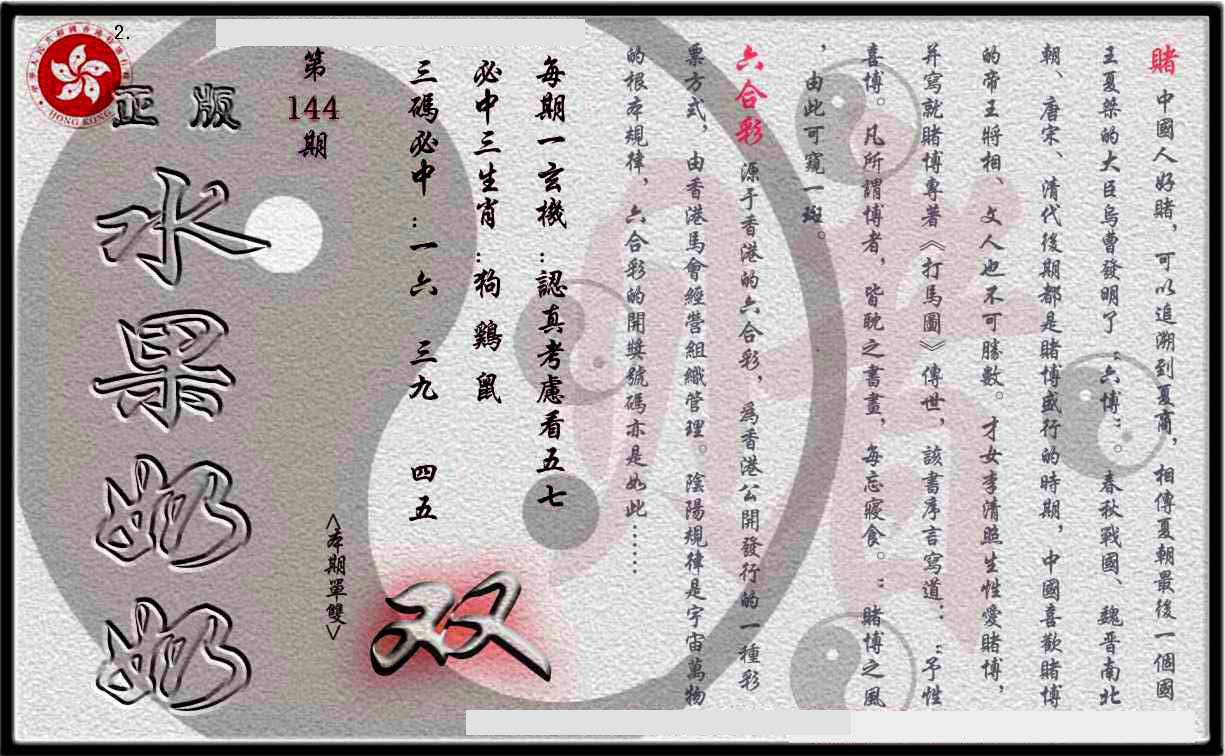 2.
賭 中國人好賭，可以追溯到夏商，相傳夏朝最後一個國
王夏桀的大臣烏曹發明了“六博”。春秋戰國、魏晋南北
朝、唐宋、清代後期都是賭博盛行的時期，中國喜歡賭博
的帝王將相、文人也不可勝數。才女李清照生性愛賭博，
并寫就賭博專著《打馬圖》傳世，該書序言寫道：“予性
喜博。凡所謂博者，皆耽之晝晝，每忘寢食。”賭博之風
，由此可窺一斑。
六合彩 源于香港的六合彩，爲香港公開發行的一種彩
票方式，由香港馬會經營組織管理。陰陽規律是宇宙萬物
的根本規律，六合彩的開獎號碼亦是如此……
每期一玄機:認真考慮看五七
必中三生肖:狗鷄鼠
三碼必中:一六 三九 四五
双
<本期單雙>
第
144
期
正版
水果奶奶
HONG KONG